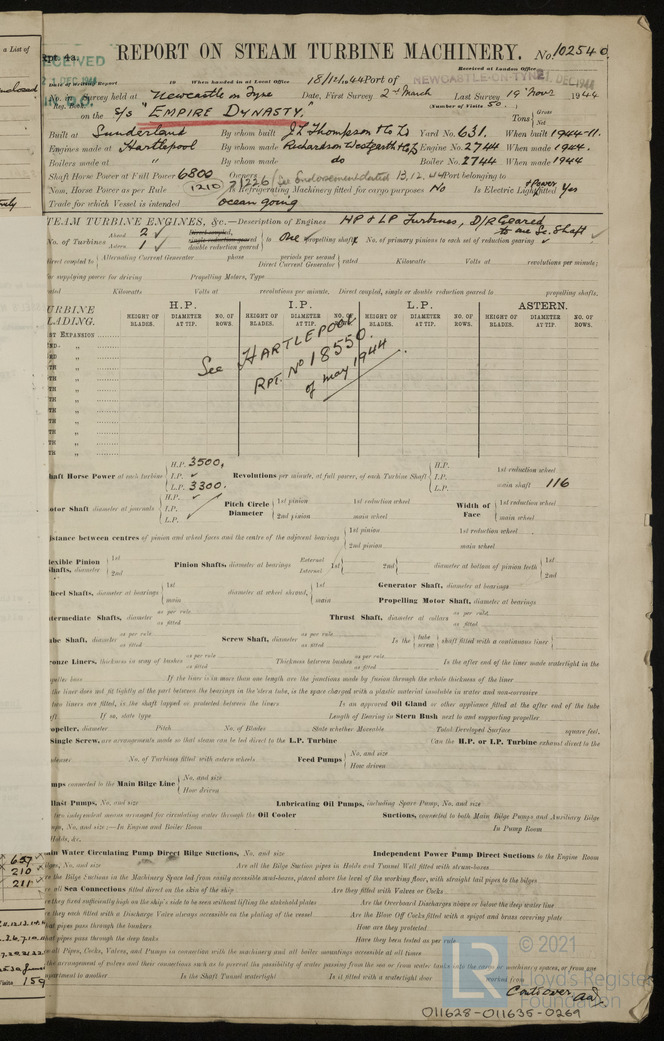 a List of
Rpt. 4a.
RECEIVED
REPORT ON STEAM TURBINE MACHINERY. No. 102540
Received at London Office
Date of writing Report 19 When handed in at Local Office 18/12/1944 Port of NEWCASTLE-ON-TYNE 21 DEC 1944
No. in Survey held at Newcastle on Tyne Date, First Survey 2nd March Last Survey 19th Novr 1944
Reg. (Number of Visits 50)
on the S/S "EMPIRE DYNASTY." Tons Gross Net
Built at Sunderland By whom built J.L. Thompson & Co Ld Yard No. 631. When built 1944-11.
Engines made at Hartlepool By whom made Richardson Westgarth & Co Ld Engine No. 2744 When made 1944.
Boilers made at " By whom made do Boiler No. 2744 When made 1944
Shaft Horse Power at Full Power 6800 Owners Port belonging to
Nom. Horse Power as per Rule 1210 1226 See Endorsement dated 13.12.44 Is Refrigerating Machinery fitted for cargo purposes No Is Electric Light & Power fitted Yes
Trade for which Vessel is intended Ocean going
STEAM TURBINE ENGINES, &c.—Description of Engines HP & LP Turbines, D/R Geared to one Sc. Shaft ✓
No. of Turbines Ahead 2 ✓ Astern 1 ✓ Direct coupled, single reduction geared double reduction geared to One propelling shaft. No. of primary pinions to each set of reduction gearing ✓
direct coupled to Alternating Current Generator phase periods per second Direct Current Generator rated Kilowatts Volts at revolutions per minute;
for supplying power for driving Propelling Motors, Type
rated Kilowatts Volts at revolutions per minute. Direct coupled, single or double reduction geared to propelling shafts.
TURBINE BLADING. H.P. I.P. L.P. ASTERN.
HEIGHT OF BLADES. DIAMETER AT TIP. NO. OF ROWS. HEIGHT OF BLADES. DIAMETER AT TIP. NO. OF ROWS. HEIGHT OF BLADES. DIAMETER AT TIP. NO. OF ROWS. HEIGHT OF BLADES. DIAMETER AT TIP. NO. OF ROWS.
1ST EXPANSION
See HARTLEPOOL
RPT. No 18550
of May 1944
Shaft Horse Power at each turbine H.P. 3500, I.P. ✓ L.P. 3300. Revolutions per minute, at full power, of each Turbine Shaft H.P. I.P. L.P. 1st reduction wheel main shaft 116
Rotor Shaft diameter at journals H.P. I.P. L.P. Pitch Circle Diameter 1st pinion 2nd pinion 1st reduction wheel main wheel Width of Face 1st reduction wheel main wheel
Distance between centres of pinion and wheel faces and the centre of the adjacent bearings 1st pinion 2nd pinion 1st reduction wheel main wheel
Flexible Pinion Shafts, diameter 1st 2nd Pinion Shafts, diameter at bearings External Internal 1st 2nd diameter at bottom of pinion teeth 1st 2nd
Wheel Shafts, diameter at bearings 1st main diameter at wheel shroud, 1st main Generator Shaft, diameter at bearings
Propelling Motor Shaft, diameter at bearings
Intermediate Shafts, diameter as per rule as fitted Thrust Shaft, diameter at collars as per rule as fitted
Tube Shaft, diameter as per rule as fitted Screw Shaft, diameter as per rule as fitted Is the tube screw shaft fitted with a continuous liner
Bronze Liners, thickness in way of bushes as per rule as fitted Thickness between bushes as per rule as fitted Is the after end of the liner made watertight in the
propeller boss If the liner is in more than one length are the junctions made by fusion through the whole thickness of the liner
If the liner does not fit tightly at the part between the bearings in the stern tube, is the space charged with a plastic material insoluble in water and non-corrosive
If two liners are fitted, is the shaft lapped or protected between the liners Is an approved Oil Gland or other appliance fitted at the after end of the tube
shaft If so, state type Length of Bearing in Stern Bush next to and supporting propeller
Propeller, diameter Pitch No. of Blades State whether Moveable Total Developed Surface square feet.
If Single Screw, are arrangements made so that steam can be led direct to the L.P. Turbine Can the H.P. or I.P. Turbine exhaust direct to the
Condenser No. of Turbines fitted with astern wheels Feed Pumps No. and size How driven
Pumps connected to the Main Bilge Line No. and size How driven
Ballast Pumps, No. and size Lubricating Oil Pumps, including Spare Pump, No. and size
Are two independent means arranged for circulating water through the Oil Cooler Suctions, connected to both Main Bilge Pumps and Auxiliary Bilge
Pumps, No. and size:—In Engine and Boiler Room In Pump Room
Holds, &c.
Main Water Circulating Pump Direct Bilge Suctions, No. and size Independent Power Pump Direct Suctions to the Engine Room
Bilges, No. and size Are all the Bilge Suction pipes in Holds and Tunnel Well fitted with strum-boxes
Are the Bilge Suctions in the Machinery Space led from easily accessible mud-boxes, placed above the level of the working floor, with straight tail pipes to the bilges
Are all Sea Connections fitted direct on the skin of the ship Are they fitted with Valves or Cocks
Are they fixed sufficiently high on the ship's side to be seen without lifting the stokehold plates Are the Overboard Discharges above or below the deep water line
Are they each fitted with a Discharge Valve always accessible on the plating of the vessel Are the Blow Off Cocks fitted with a spigot and brass covering plate
What pipes pass through the bunkers How are they protected
What pipes pass through the deep tanks Have they been tested as per rule
Are all Pipes, Cocks, Valves, and Pumps in connection with the machinery and all boiler mountings accessible at all times
Is the arrangement of valves and their connections such as to prevent the possibility of water passing from the sea or from water tanks into the cargo or machinery spaces, or from one
compartment to another Is the Shaft Tunnel watertight Is it fitted with a watertight door worked from
657
210
211
159
© 2021
LR Lloyd's Register Foundation
Contd over
011628-011635-0269